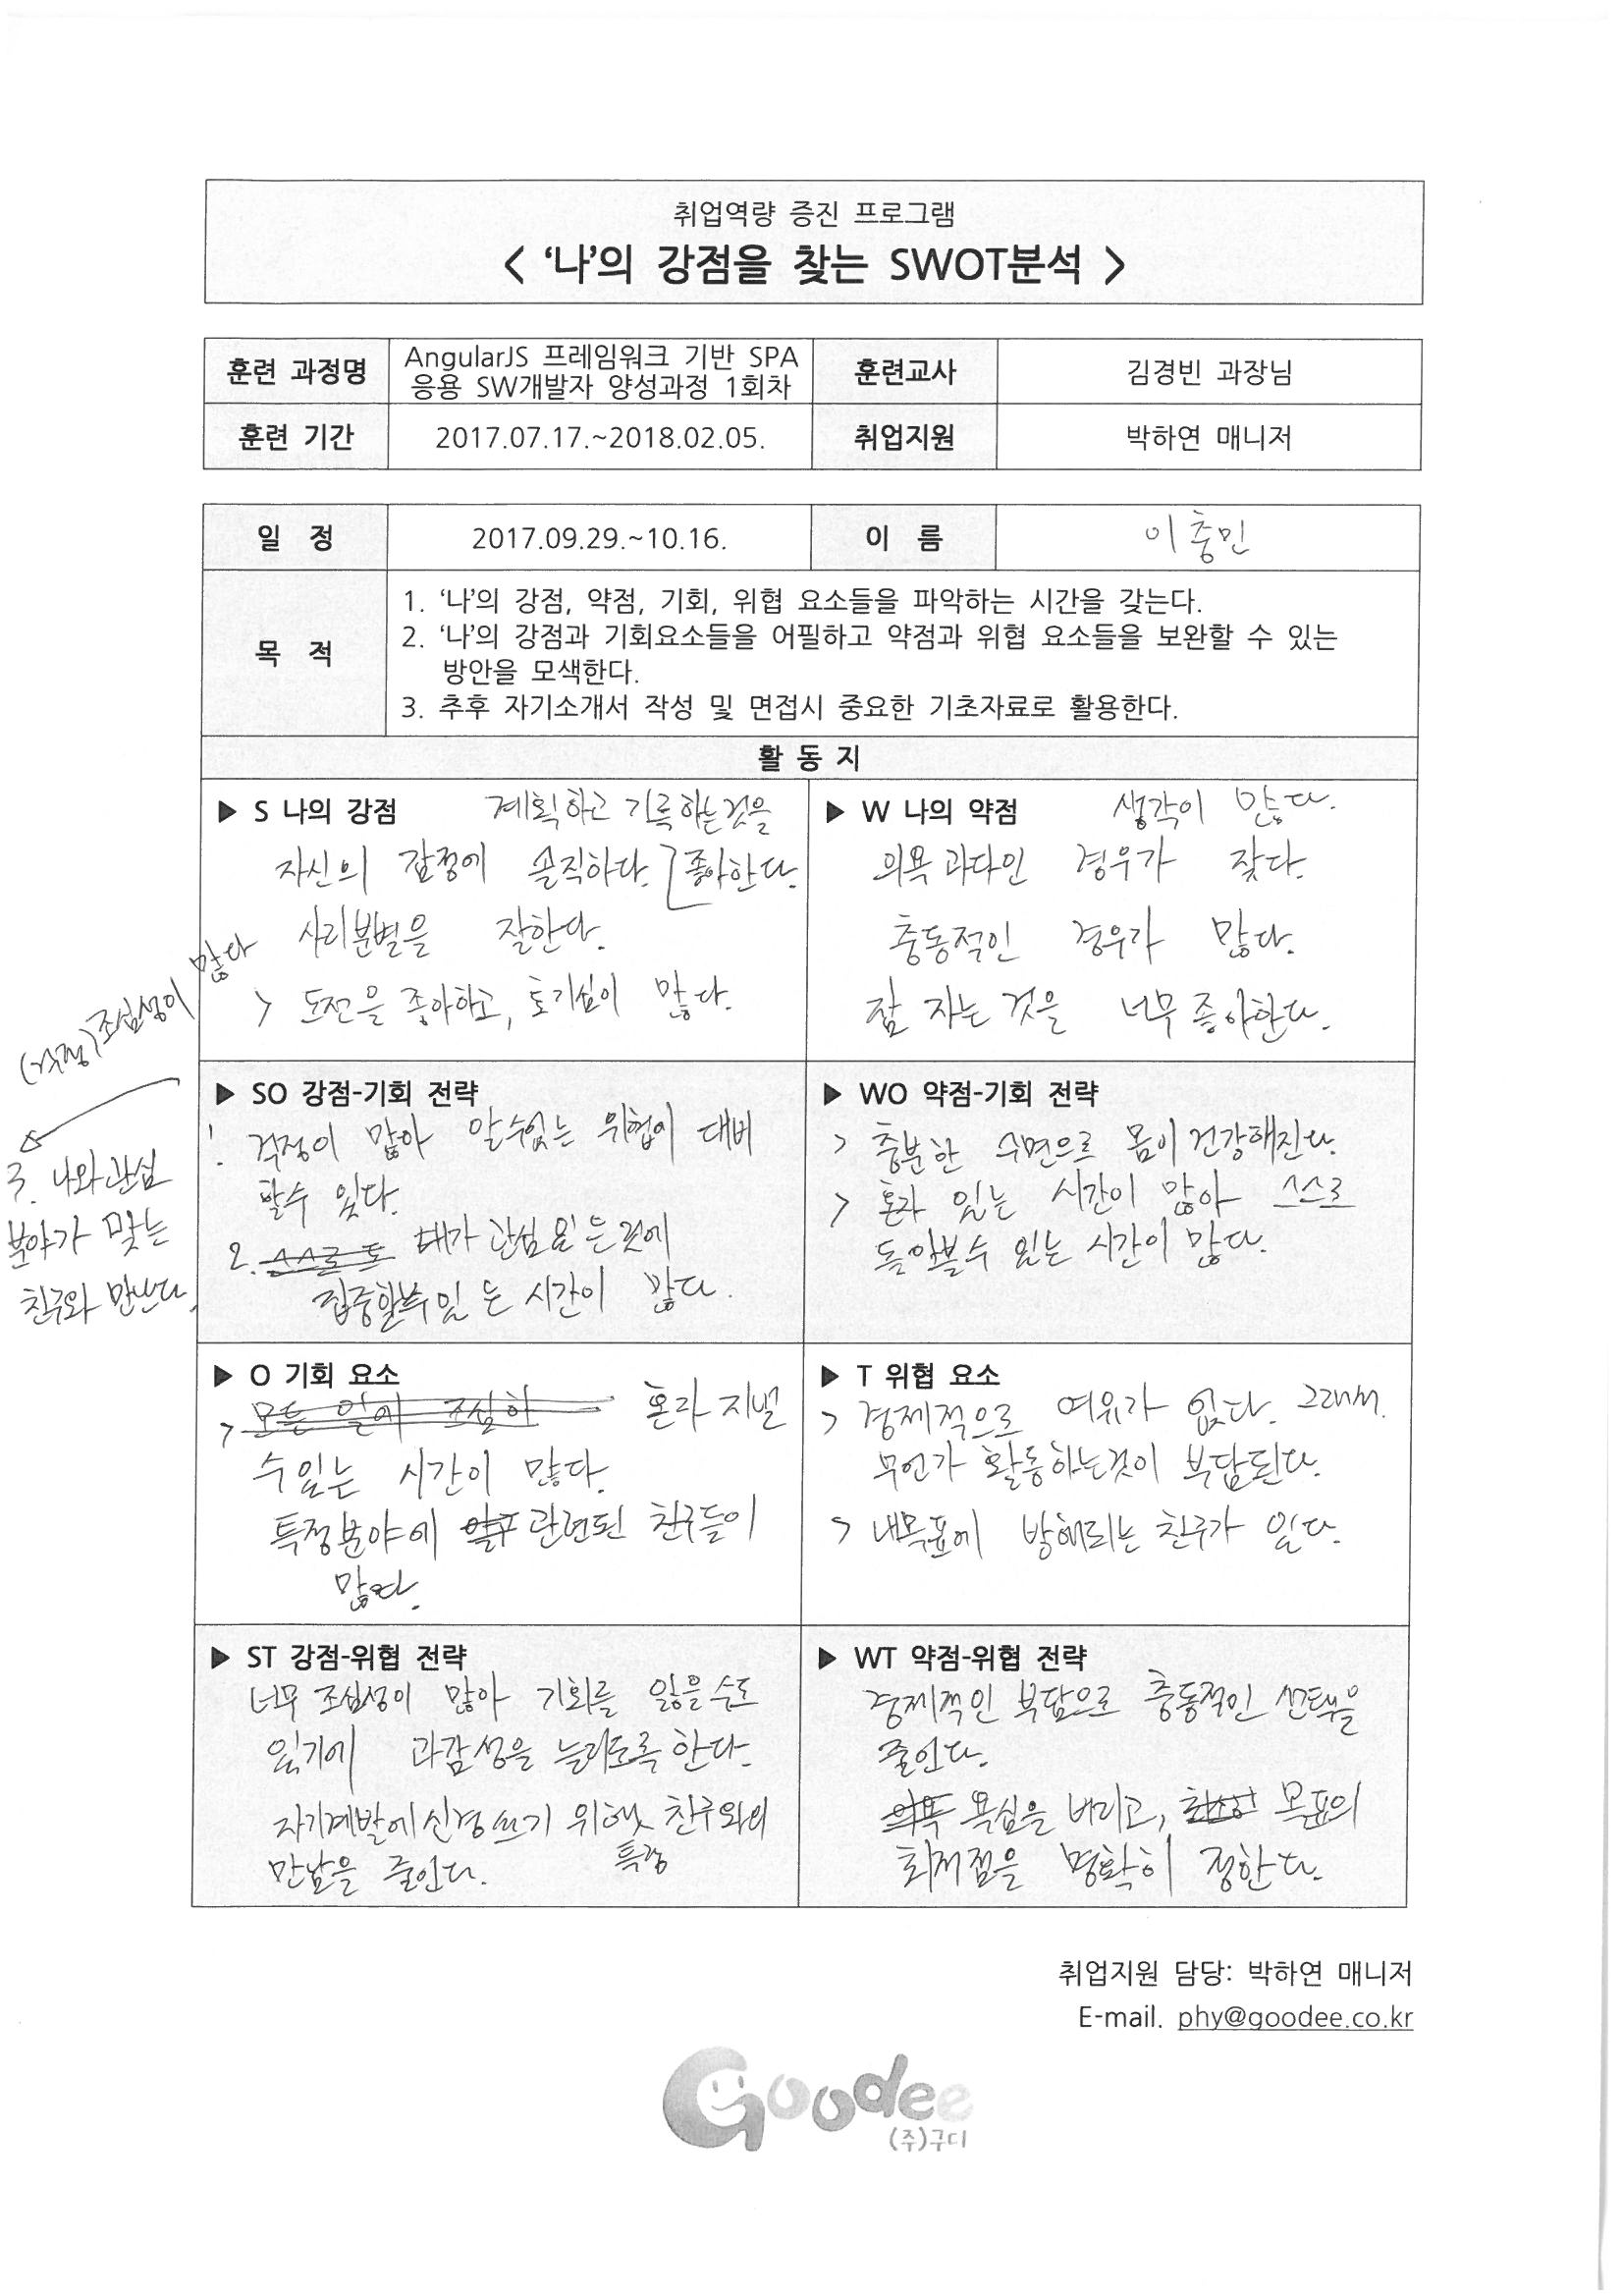 취업역량 증진 프로그램
< ‘나’의 강점을 찾는 SWOT분석 >
훈련 과정명
AngularJS 프레임워크 기반 SPA
응용 SW개발자 양성과정 1회차
훈련교사
김경빈 과장님
훈련 기간
2017.07.17.~2018.02.05.
취업지원
박하연 매니저
일 정
2017.09.29.~10.16.
이 름
이충민
목 적
1. ‘나’의 강점, 약점, 기회, 위협 요소들을 파악하는 시간을 갖는다.
2. ‘나’의 강점과 기회요소들을 어필하고 약점과 위협 요소들을 보완할 수 있는
방안을 모색한다.
3. 추후 자기소개서 작성 및 면접시 중요한 기초자료로 활용한다.
활 동 지
▶ S 나의 강점
계획하고 기록하는것을
좋아한다.
자신의 감정에 솔직하다.
사리분별을 잘한다.
> 도전을 좋아하고, 호기심이 많다.
(걱정)조심성이 많다
▶ W 나의 약점
생각이 많다.
의욕 과다인 경우가 잦다.
충동적인 경우가 많다.
잠 자는 것을 너무 좋아한다.
▶ SO 강점-기회 전략
1. 걱정이 많아 알수있는 위협이 대비
할수 있다.
2. 스스로도 내가 관심있는것에
집중할수있는 시간이 많다.
3. 나와 관심
분야가 맞는
친구와 만난다.
▶ WO 약점-기회 전략
> 충분한 수면으로 몸이 건강해진다.
> 혼자 있는 시간이 많아 스스로
돌아볼수 있는 시간이 많다.
▶ O 기회 요소
> 모든 일에 조심하 혼자 지낼
수있는 시간이 많다.
특정분야에 관련된 친구들이
많다.
▶ T 위협 요소
> 경제적으로 여유가 없다. 그래서.
무언가 활동하는것이 부담된다.
> 내목표에 방해되는 친구가 있다.
▶ ST 강점-위협 전략
너무 조심성이 많아 기회를 잃을수도
있기에 과감성을 늘리도록 한다.
자기계발에 신경쓰기 위해 특정 친구와의
만남을 줄인다.
▶ WT 약점-위협 전략
경제적인 부담으로 충동적인 선택을
줄인다.
의욕 욕심을 버리고, 목표의
최저점을 명확히 정한다.
취업지원 담당: 박하연 매니저
E-mail. phy@goodee.co.kr
Goodee
(주)구디